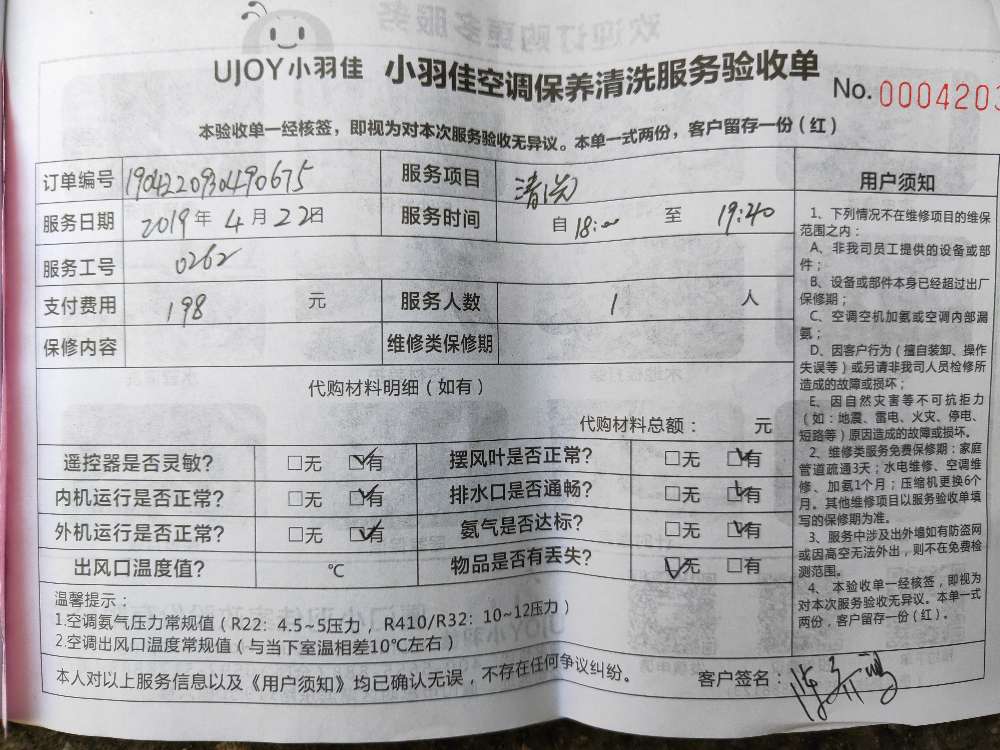 UJOY小羽佳 小羽佳空调保养清洗服务验收单
No. 0004203
本验收单一经核签，即视为对本次服务验收无异议。本单一式两份，客户留存一份（红）
订单编号 190422093049 0675 服务项目 清洗
服务日期 2019年4月22日 服务时间 自18:00 至 19:40
服务工号 0262
支付费用 198 元 服务人数 1 人
保修内容 维修类保修期
代购材料明细（如有）
代购材料总额： 元
遥控器是否灵敏? □无 ☑有 摆风叶是否正常? □无 ☑有
内机运行是否正常? □无 ☑有 排水口是否通畅? □无 ☑有
外机运行是否正常? □无 ☑有 氨气是否达标? □无 ☑有
出风口温度值? ℃ 物品是否有丢失? ☑无 □有
温馨提示：
1.空调氨气压力常规值（R22：4.5~5压力，R410/R32：10~12压力）
2.空调出风口温度常规值（与当下室温相差10℃左右）
本人对以上服务信息以及《用户须知》均已确认无误，不存在任何争议纠纷。 客户签名：
用户须知
1、下列情况不在维修项目的维保
范围之内：
A、非我司员工提供的设备或部
件；
B、设备或部件本身已经超过出厂
保修期；
C、空调空机加氨或空调内部漏
氨；
D、因客户行为（擅自装卸、操作
失误等）或另请非我司人员检修所
造成的故障或损坏；
E、因自然灾害等不可抗拒力
（如：地震、雷电、火灾、停电、
短路等）原因造成的故障或损坏。
2、维修类服务免费保修期：家庭
管道疏通3天；水电维修、空调维
修、加氨1个月；压缩机更换6个
月。其他维修项目以服务验收单填
写的保修期为准。
3、服务中涉及出外墙如有防盗网
或因高空无法外出，则不在免费检
测范围。
4、本验收单一经核签，即视为
对本次服务验收无异议。本单一式
两份，客户留存一份（红）。